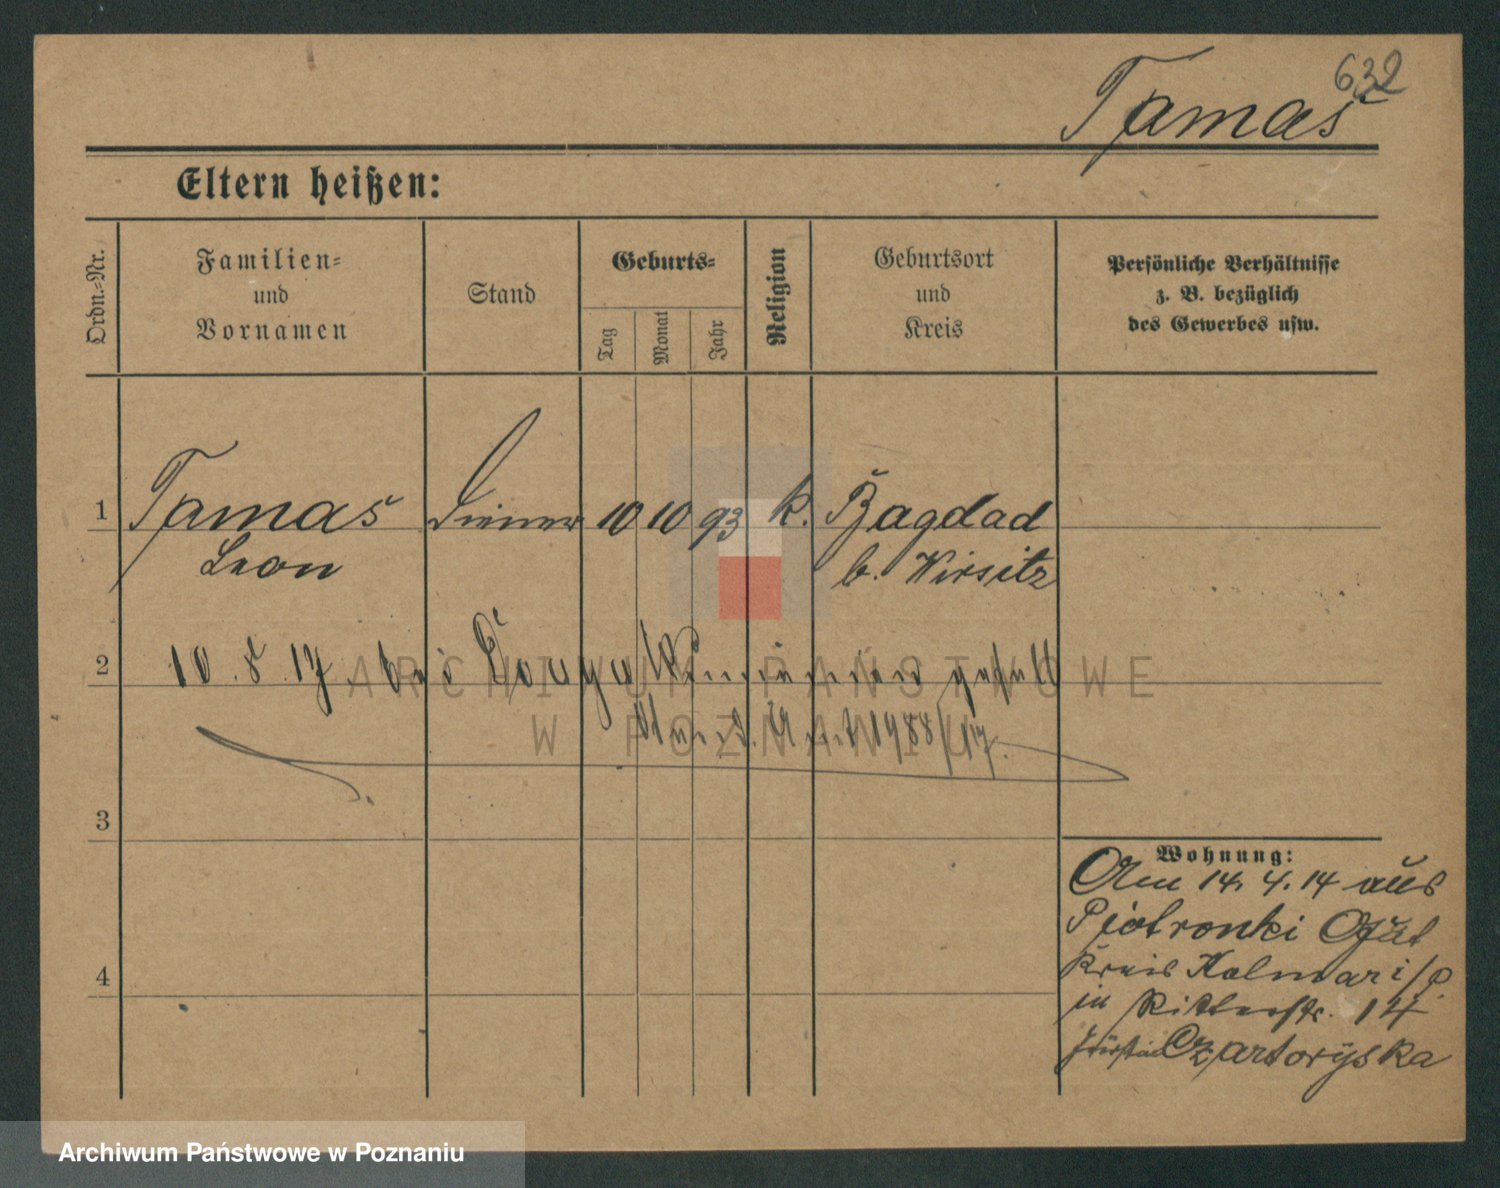 632
Tamaš
Eltern heißen:
Ordn.-Nr.
Familien-
und
Vornamen
Stand
Geburts-
Tag
Monat
Jahr
Religion
Geburtsort
und
Kreis
Persönliche Verhältnisse
z. B. bezüglich
des Gewerbes usw.
1 Tamaš Diener 10 10 93 k. Bagdad
Leon b. Wirsitz
2 10. 8. 17. bei gefall
1988/17.
3
4
Wohnung:
Am 14. 4. 14 aus
Piotronki Gut
Kreis Kolmar i/P.
in Ritterstr. 14
Fürstin Czartoryska
ARCHIWUM PAŃSTWOWE
W POZNANIU
Archiwum Państwowe w Poznaniu